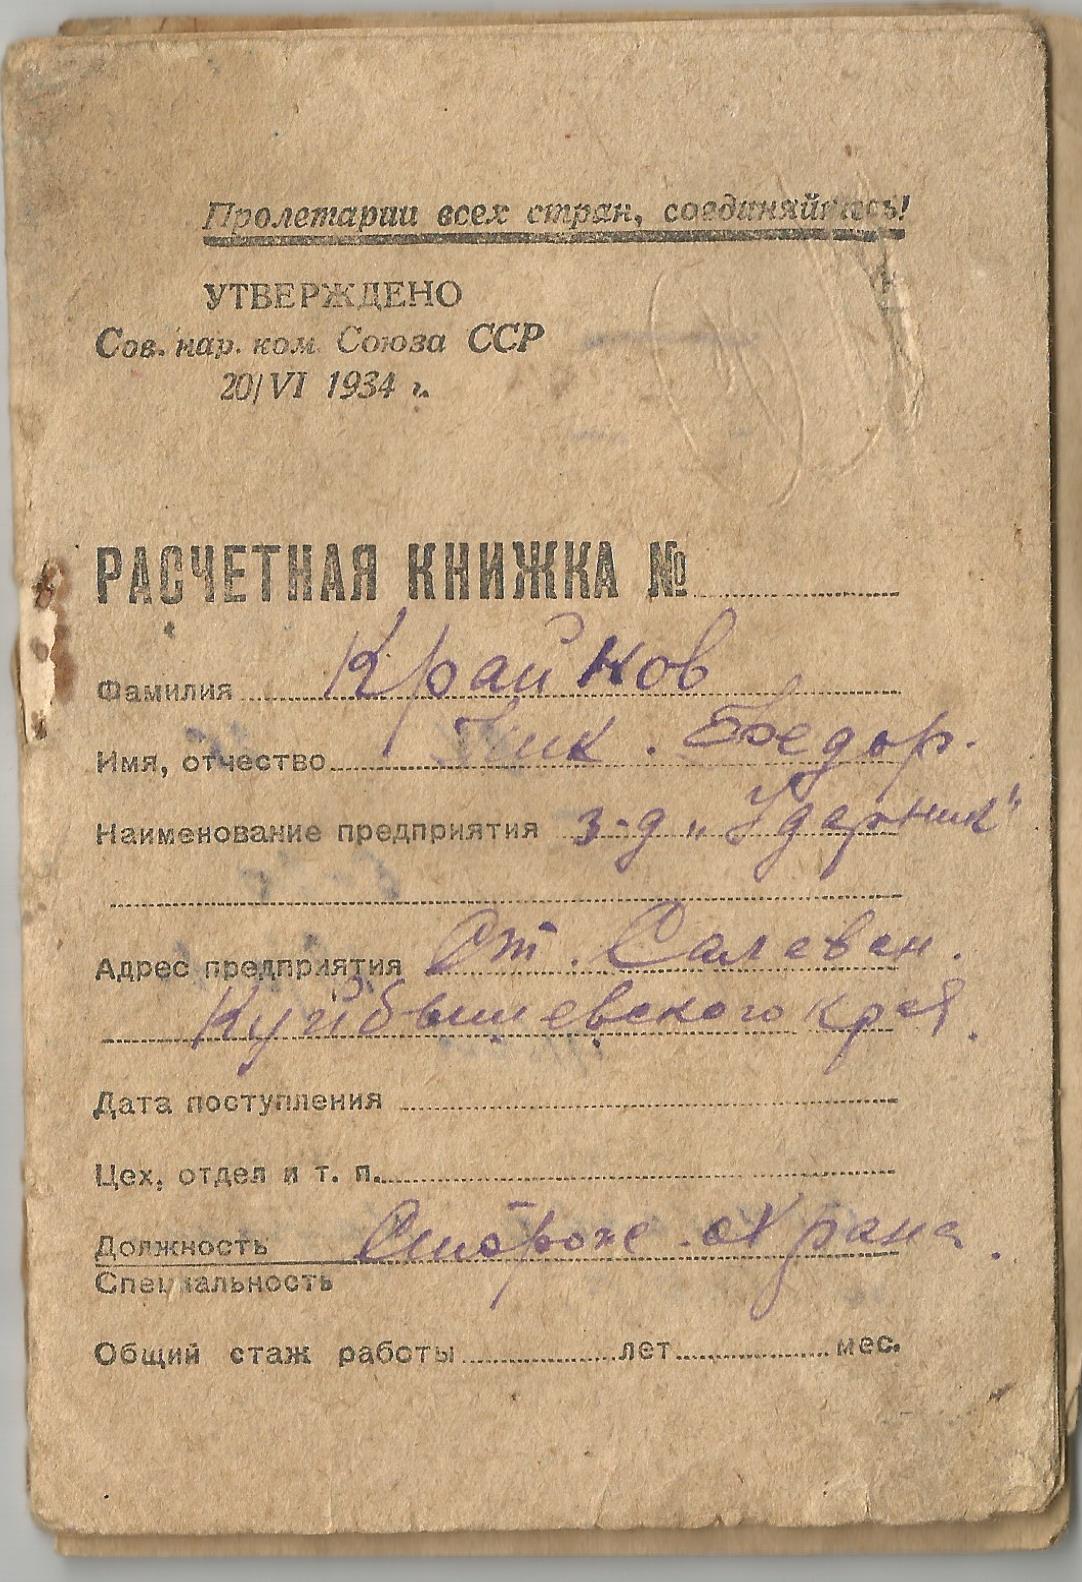 Пролетарии всех стран, соединяйтесь!
УТВЕРЖДЕНО
Сов. нар. ком. Союза ССР
20/VI 1934 г.
РАСЧЕТНАЯ КНИЖКА №
Фамилия Крайнов
Имя, отчество Ник. Федор.
Наименование предприятия з-д „Ударник"
Адрес предприятия Ст. Салеван.
Куйбышевского края.
Дата поступления
Цех, отдел и т. п.
Должность Сторож охрана.
Специальность
Общий стаж работы лет мес.